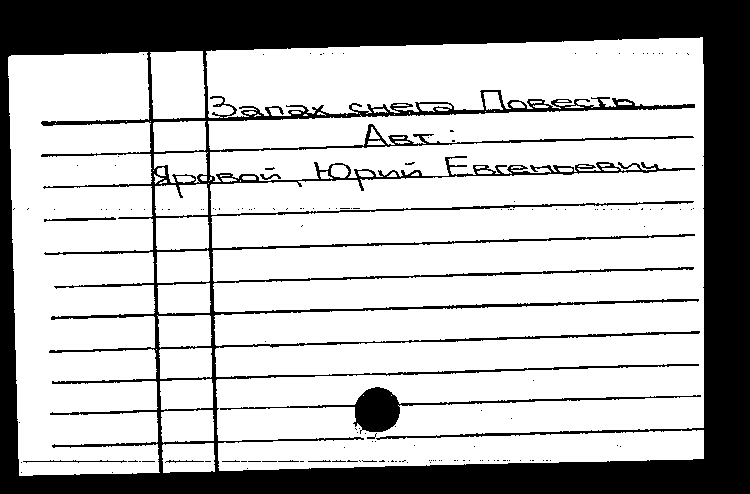 Запах снега. Повесть.
Авт.:
Яровой, Юрий Евгеньевич